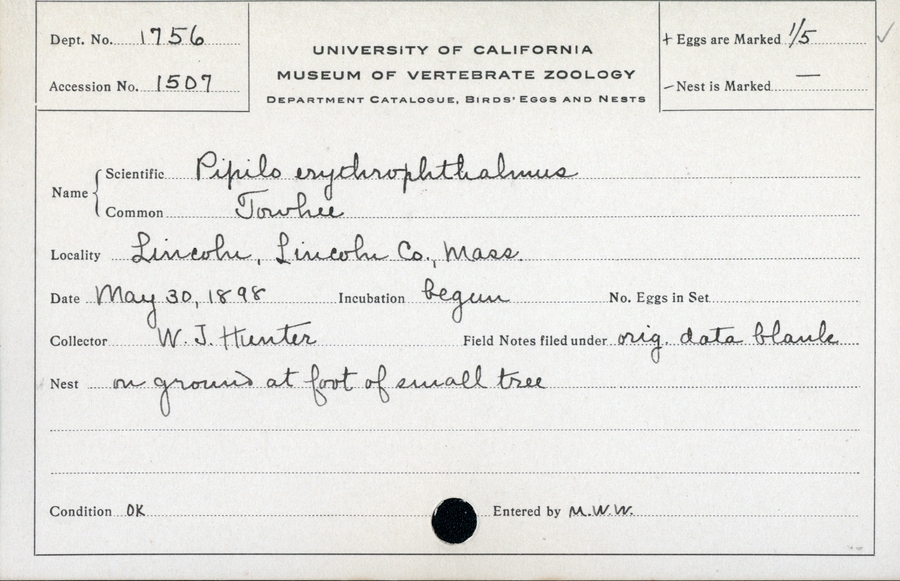 Dept. No. 1756
Accession No. 1507
UNIVERSITY OF CALIFORNIA
MUSEUM OF VERTEBRATE ZOOLOGY
DEPARTMENT CATALOGUE, BIRDS' EGGS AND NESTS
+ Eggs are Marked 1/5 ✓
– Nest is Marked —
Name { Scientific Pipilo erythrophthalmus
Common Towhee
Locality Lincoln, Lincoln Co., Mass.
Date May 30, 1898 Incubation begun No. Eggs in Set
Collector W. J. Hunter Field Notes filed under orig. data blank
Nest on ground at foot of small tree
Condition OK Entered by M.W.W.